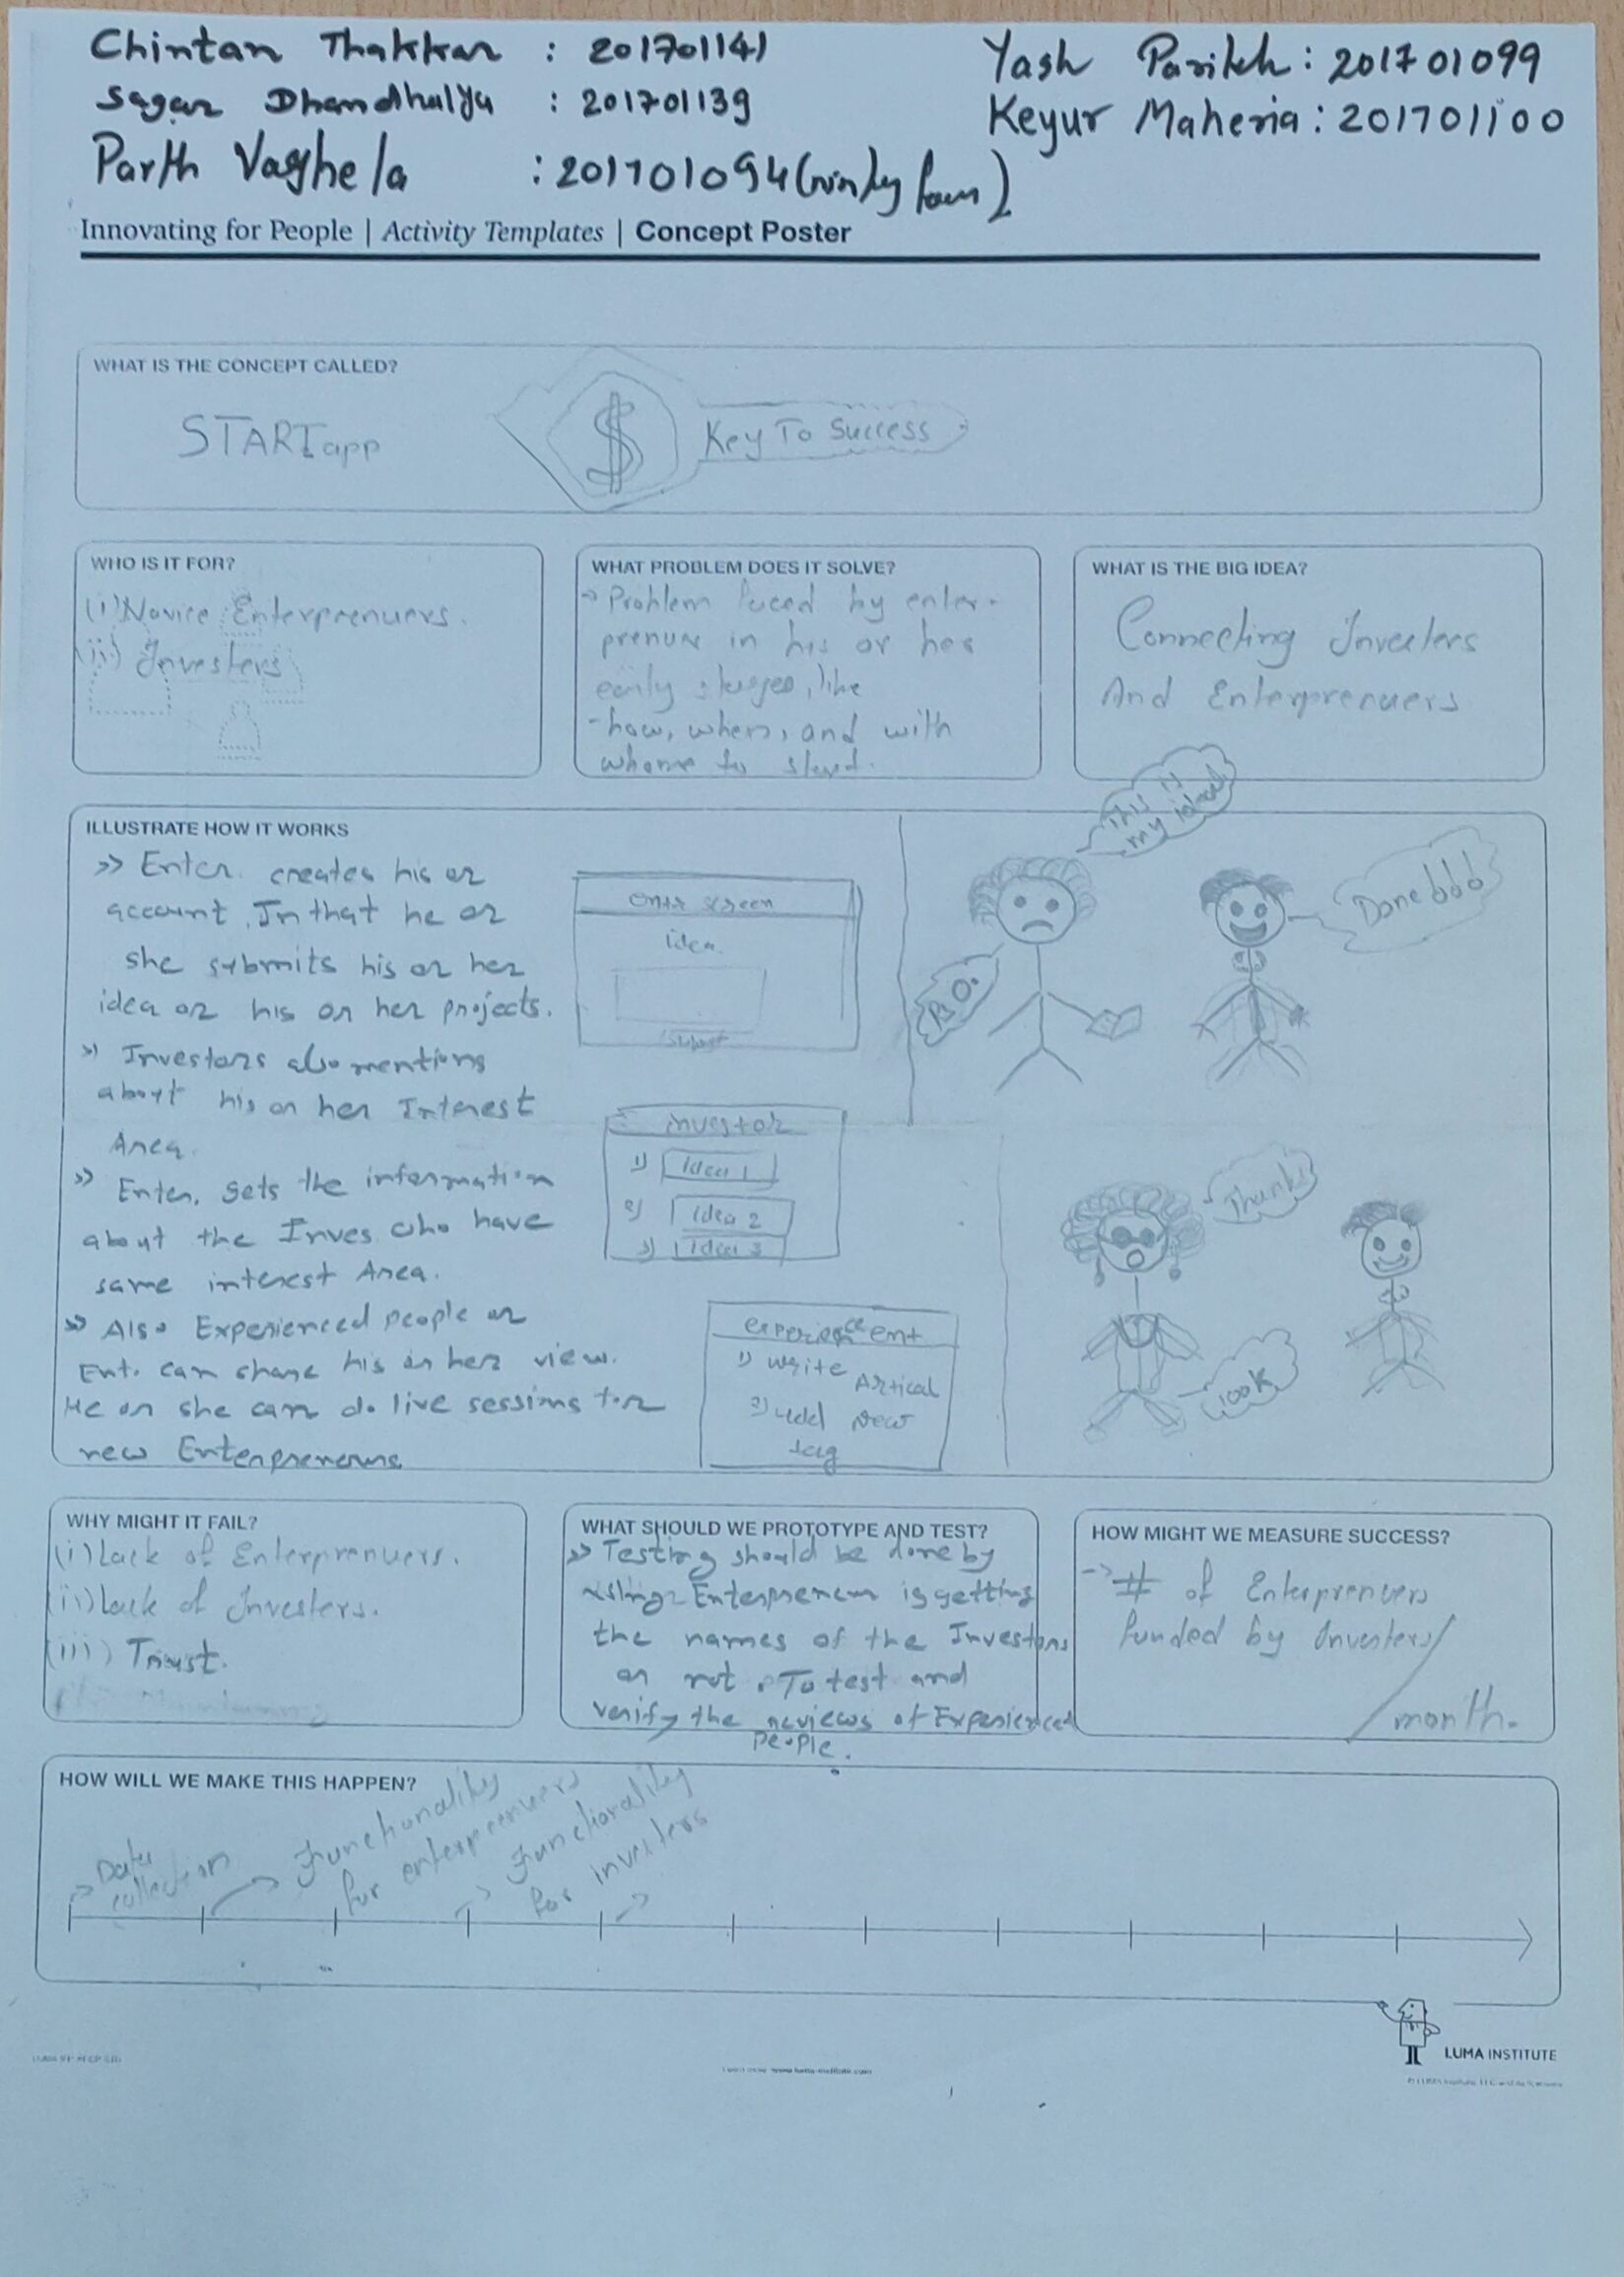 Chintan Thakkar : 201701141
Sagar Dhandhalya : 201701139
Parth Vaghela : 201701094
Yash Parikh : 201701099
Keyur Maheria : 201701100
Innovating for People | Activity Templates | Concept Poster
WHAT IS THE CONCEPT CALLED?
STARTapp
$
Key To Success
WHO IS IT FOR?
(i) Novice Enterprenuers.
(ii) Investers
WHAT PROBLEM DOES IT SOLVE?
→ Problem faced by enter-
prenure in his or her
early stages, like
-how, when, and with
whome to start.
WHAT IS THE BIG IDEA?
Connecting Investers
And Enterprenuers
ILLUSTRATE HOW IT WORKS
>> Enter. creates his or
account. In that he or
she submits his or her
idea or his or her projects.
>> Investors also mentions
about his or her Interest
Area.
>> Enter. gets the information
about the Inves who have
same interest Area.
>> Also Experienced people or
Ent. can share his or her view.
He or she can do live sessions for
new Enterpreneurs
screen
idea
Submit
investor
1) Idea 1
2) Idea 2
3) Idea 3
1) write Artical
2) Add new
tag
This is
my idea
Done
Thanks
100K
WHY MIGHT IT FAIL?
(i) Lack of Enterprenuers.
(ii) Lack of Investers.
(iii) Trust.
WHAT SHOULD WE PROTOTYPE AND TEST?
>> Testing should be done by
Enterpreneur is getting
the names of the Investors
or not. To test and
verify the reviews of Experienced
People.
HOW MIGHT WE MEASURE SUCCESS?
→ # of Enterprenuers
funded by Investers/
month.
HOW WILL WE MAKE THIS HAPPEN?
→ Data
collection
→ Functionality
for enterprenuers
→ Functionality
for investers
→
LUMA INSTITUTE